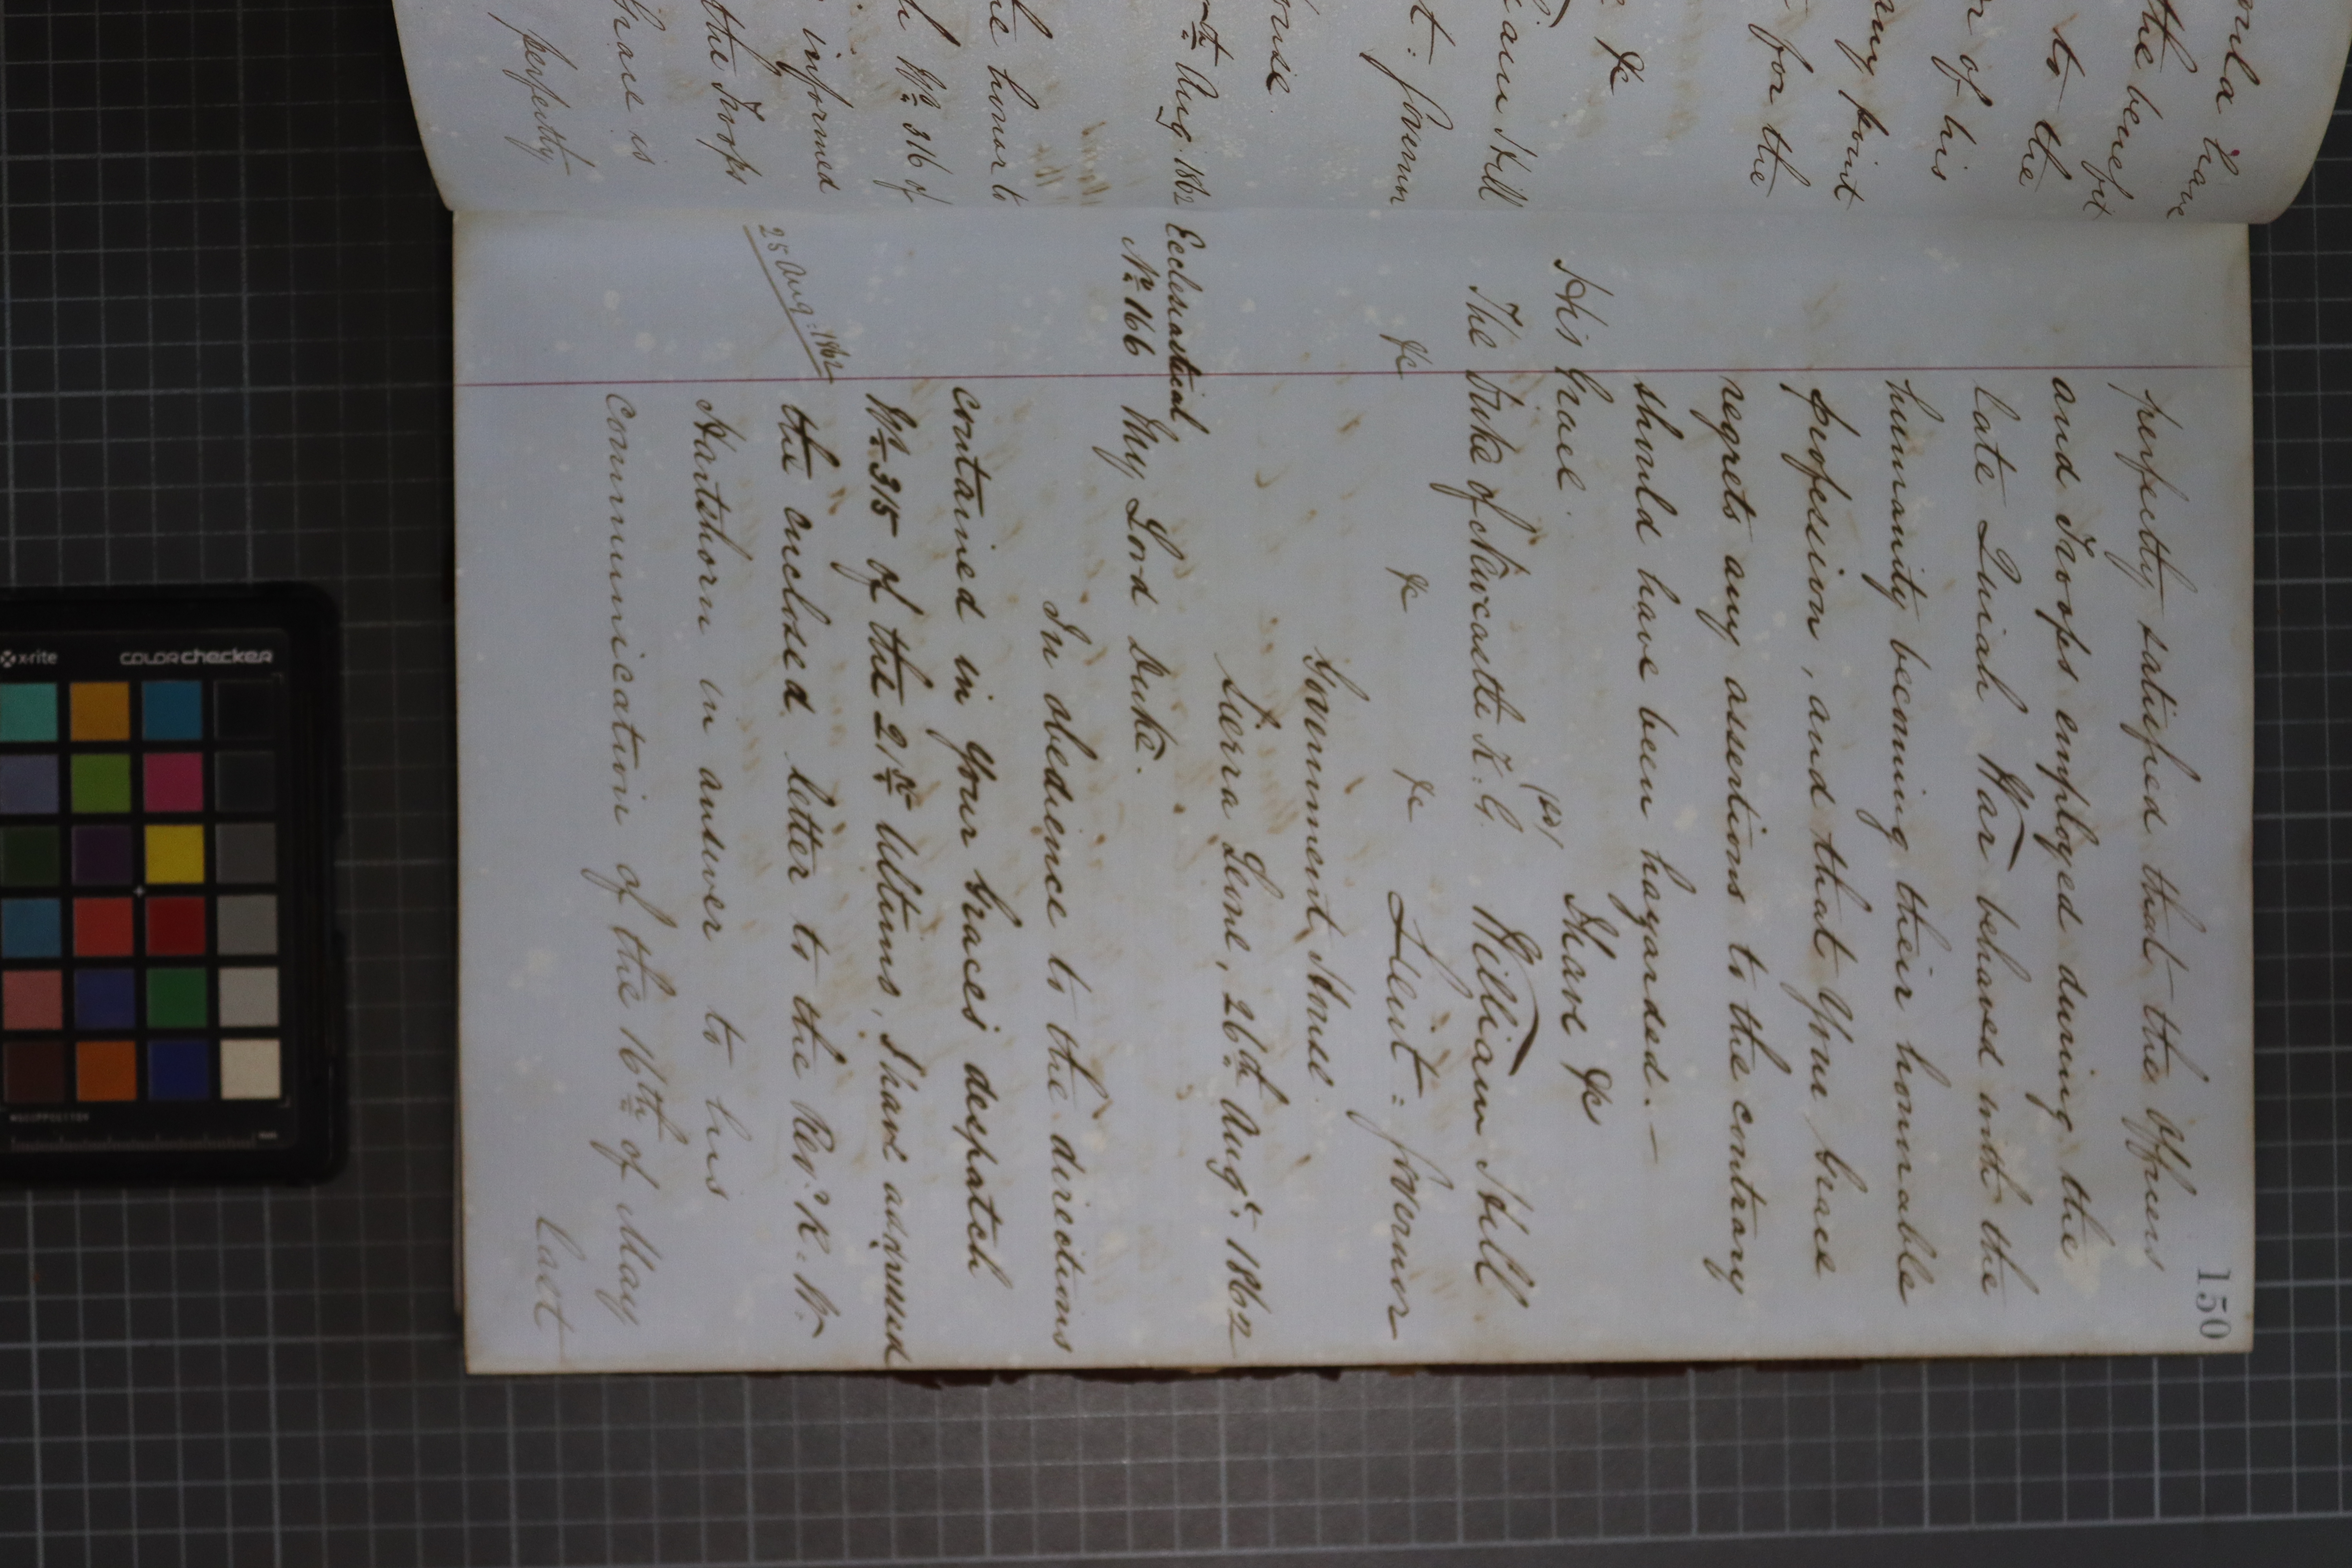 150
perfectly satisfied that the Officers
and Troops employed during the
late Quiah War behaved with the
humanity becoming their honorable
profession, and that Your Grace
regrets any assertions to the contrary
should have been hazarded. —
I have &c
His Grace
(sd) William Hill
The Duke of Newcastle K. G.
&c &c &c Lieut: Governor
Government House
Sierra Leone, 26th Augt. 1862
Ecclesiastical
No. 166 My Lord Duke.
In obedience to the directions
contained in Your Grace's despatch
No. 315 of the 21st Ultimo, I have addressed
25 Aug: 1862
the enclosed letter to the Revd. R. R.
Hartshorn in answer to his
communication of the 16th of May
last
have
the benefit
to the
of his
point
for the
&c
Hill
t: Governor
th Aug 1862
he honor to
No. 316 of
informed
the Troops
Grace is
perfectly
x-rite
colorchecker